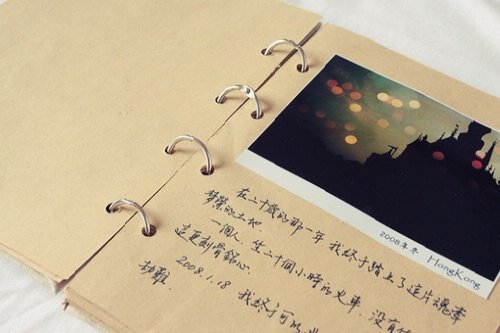 2008.年末 HongKong
在二十歲的那一年 我終于踏上了這片魂牽
夢縈的土地.
一個人. 坐二十個小時的火車. 沒有
這更刻骨銘心
2008.1.18 我終于可以